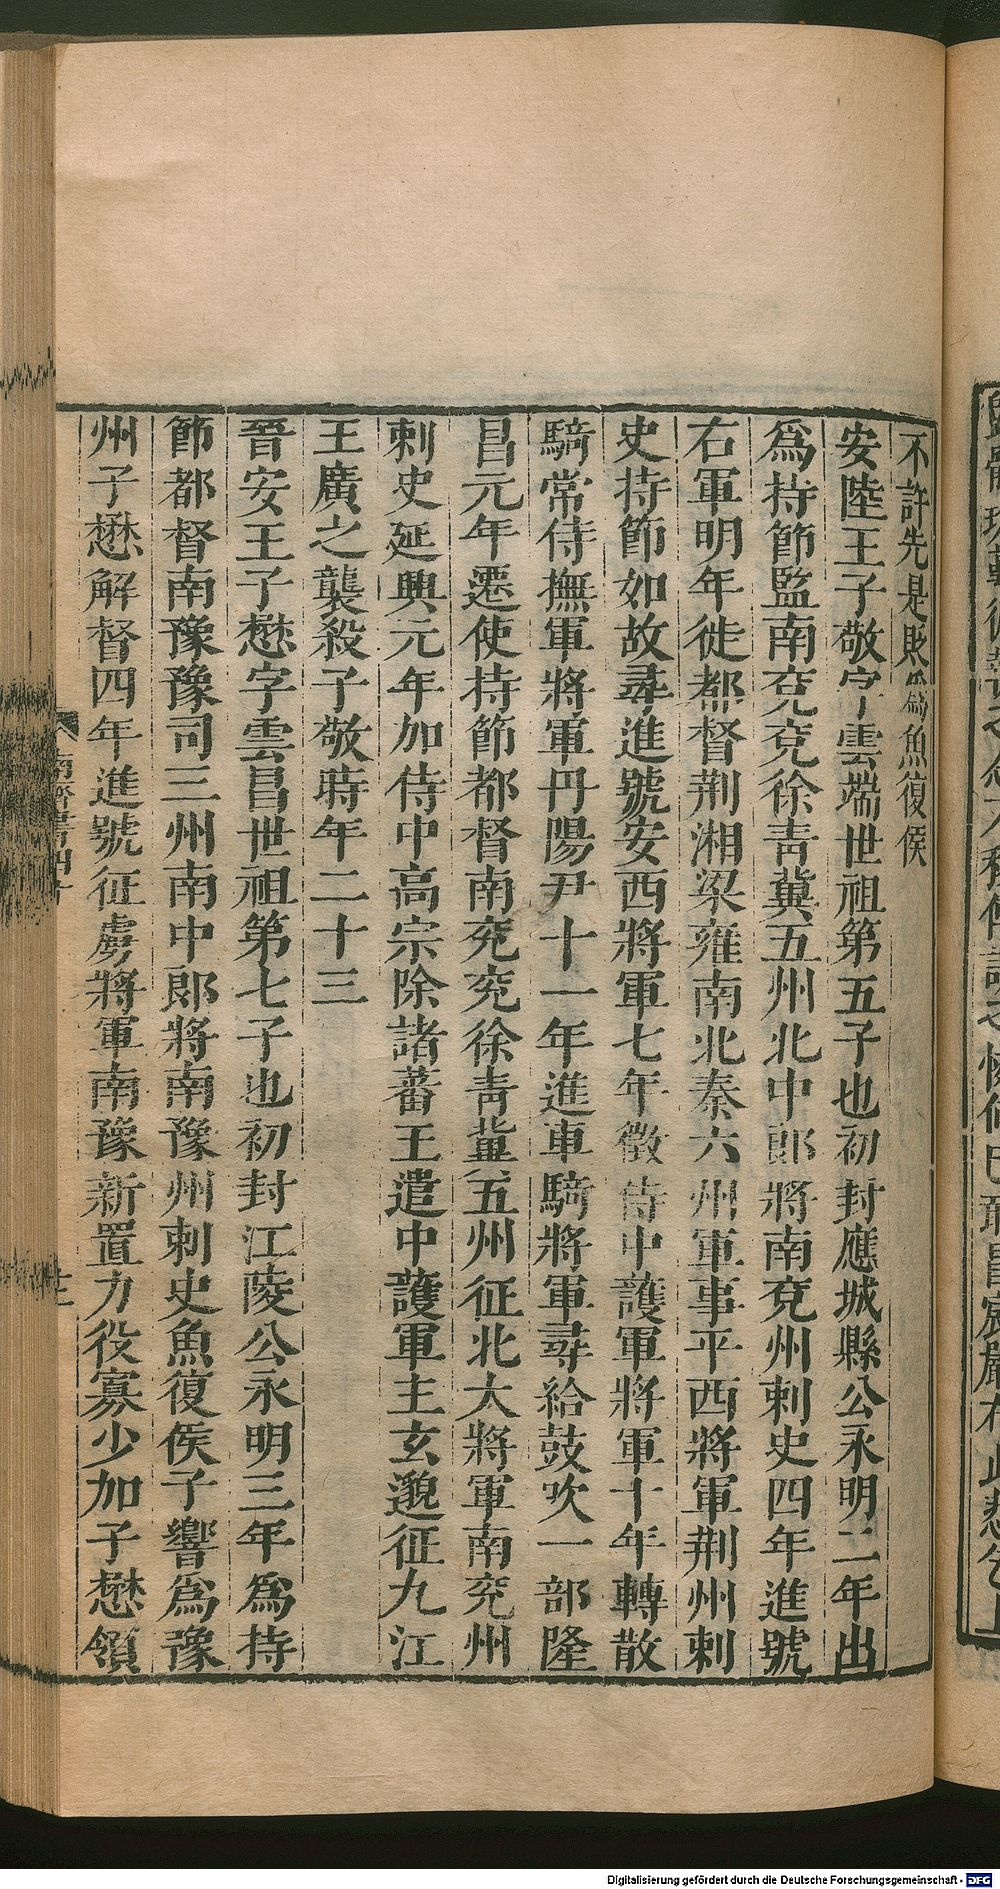 不許先是貶爲魚復侯
安陸王子敬字雲端世祖第五子也初封應城縣公永明二年出
爲持節監南兗兗徐靑冀五州北中郎將南兗州刺史四年進號
右軍明年徙都督荆湘梁雍南北秦六州軍事平西將軍荆州刺
史持節如故尋進號安西將軍七年徵侍中護軍將軍十年轉散
騎常侍撫軍將軍丹陽尹十一年進車騎將軍尋給鼓吹一部隆
昌元年遷使持節都督南兗兗徐靑冀五州征北大將軍南兗州
刺史延興元年加侍中高宗除諸蕃王遣中護軍王玄邈征九江
王廣之襲殺子敬時年二十三
晉安王子懋字雲昌世祖第七子也初封江陵公永明三年爲持
節都督南豫豫司三州南中郎將南豫州刺史魚復侯子響爲豫
州子懋解督四年進號征虜將軍南豫新置力役寡少加子懋領
南齊書四十
Digitalisierung gefördert durch die Deutsche Forschungsgemeinschaft - DFG